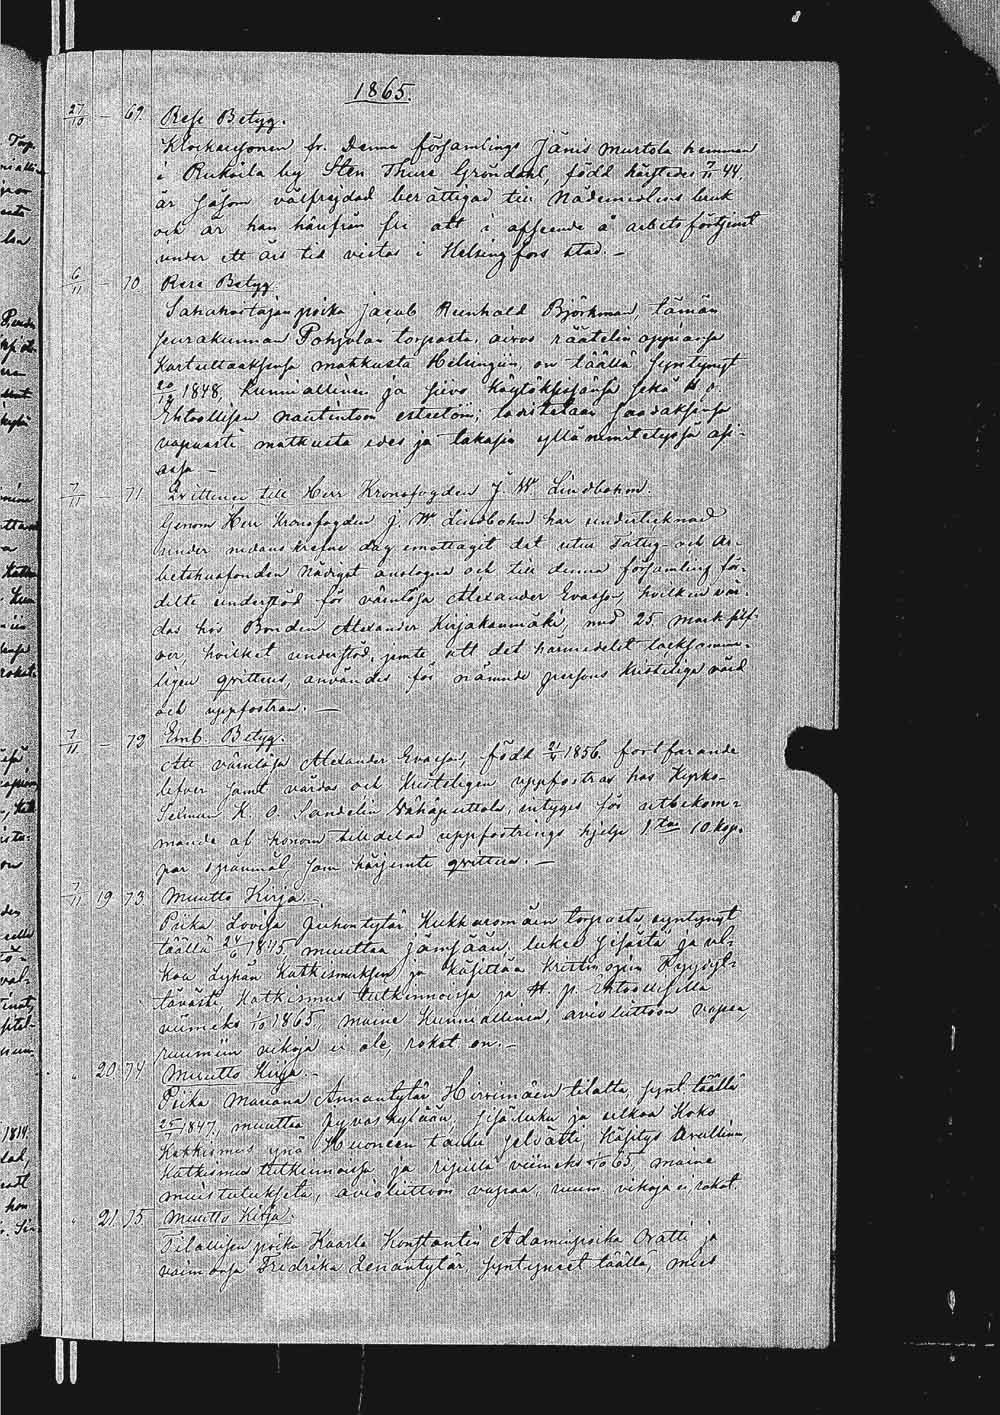 1865.
27/10 — 69. Rese Betyg.
Klockaresonen fr. denna församlings Jänis Murtola hemman
i Ruksila by Sten Thure Gröndahl, född härstedes 7/11 44.
är såsom välfrejdad berättigad till Nådemedlens bruk
och är han härifrån fri att i afseende å arbetsförtjenst
under ett års tid vistas i Helsingfors stad. —
6/11 — 70 Rese Betyg.
poika Jacob Reinhold Björkman, tämän
seurakunnan Pohjolan torpasta, aivoo räätelin oppiansa
matkusta Helsingiin, on täällä syntynyt
1848, Kunniallinen ja siivo Käytöksessänsä sekä H. p.
Ehtoollisen nautintoon esteetöin; saadaksensa
vapaasti matkusta edes ja takasin yllä nimitetyssä asi-
assa —
7/11 — 71. Qvittence till Herr Kronofogden J. W. Lindbohm.
Genom Herr Kronofogden J. W. Lindbohm har undertecknad
under nedanskrefne dag emottagit det utur Fattig- och Ar-
betshusfonden Nådigst anslagna och till denna församling för-
delte understöd för värnlösa Alexander Evasson, hvilken vår-
das hos Bonden Alexander Kirjakanmäki, med 25 mark silf-
ver, hvilket understöd, jemte att det härmedelst tacksamme-
ligen qvitteras, användes för nämnde persons kristeliga vård
och uppfostran. —
7/11 — 72 Emb. Betyg.
Att värnlösa Alexander Evasson, född 21/4 1856. fortfarande
lefver samt vårdas och Kristeligen uppfostras hos Kyrko-
K. O. Sandelin intyges för utbekom-
mande af honom tilldelad uppfostrings hjelp 10 kop.
par spanmål, som härjemte qvitteras. —
7/11 19 73 Muutto Kirja. —
Piika Lovisa Juhontytär Kukkaromäen torpasta syntynyt
täällä 24/6 1845 muuttaa Jämsään, lukee sisästä ja ul-
koa Lyhän Katkismuksen ja käsittää Kristin opin
Katkismus tutkinnoissa ja H. p. Ehtoollisella
viimeks 1/10 1865, maine Kunniallinen, avioliittoon vapaa,
ruumiin vikoja ei ole, rokot on. —
" 20 74 Muutto Kirja. —
Piika Mariana Annantytär Hirvimäen tilalta, synt. täällä
25/7 1847, muuttaa Jyväskylään, sisäluku ja ulkoa Koko
Katkismus ynä Huoneen taulu selvästi, Käsitys Avullinen,
Katkismus tutkinnoissa ja ripillä viimeks 1/10 65, maine
muistutukseta, avioliittoon vapaa, ruum. vikoja ei, rokot.
" 21. 75 Muutto Kirja.
Tilallisen poika Kaarle Konstantin Adaminpoika Ratti ja
vaimonsa Fredrika Leenantytär, syntyneet täällä, mies